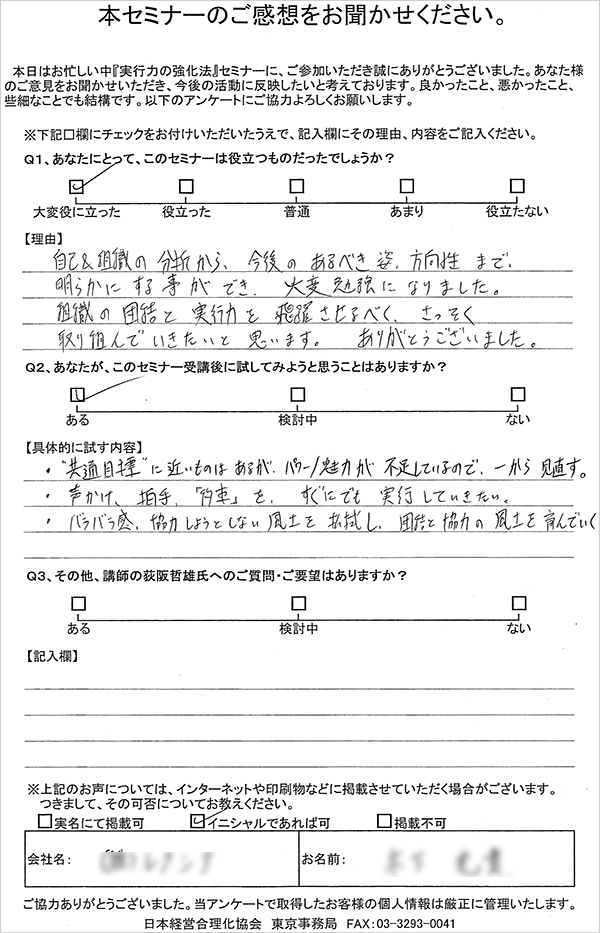 本セミナーのご感想をお聞かせください。
本日はお忙しい中『実行力の強化法』セミナーに、ご参加いただき誠にありがとうございました。あなた様
のご意見をお聞かせいただき、今後の活動に反映したいと考えております。良かったこと、悪かったこと、
些細なことでも結構です。以下のアンケートにご協力よろしくお願いします。
※下記口欄にチェックをお付けいただいたうえで、記入欄にその理由、内容をご記入ください。
Q1、あなたにとって、このセミナーは役立つものだったでしょうか?
大変役に立った 役立った 普通 あまり 役立たない
【理由】
自己&組織の分析から、今後のあるべき姿、方向性まで、
明らかにする事ができ、大変勉強になりました。
組織の団結と実行力を飛躍させるべく、さっそく
取り組んでいきたいと思います。ありがとうございました。
Q2、あなたが、このセミナー受講後に試してみようと思うことはありますか?
ある 検討中 ない
【具体的に試す内容】
・"共通目標"に近いものはあるが、パワー/魅力が不足しているので、一から見直す。
・声かけ、拍手、を、すぐにでも実行していきたい。
・バラバラ感、協力しようとしない風土を払拭し、団結と協力の風土を育んでいく
Q3、その他、講師の荻阪哲雄氏へのご質問・ご要望はありますか?
ある 検討中 ない
【記入欄】
※上記のお声については、インターネットや印刷物などに掲載させていただく場合がございます。
つきまして、その可否についてお教えください。
実名にて掲載可 イニシャルであれば可 掲載不可
会社名: お名前:
ご協力ありがとうございました。当アンケートで取得したお客様の個人情報は厳正に管理いたします。
日本経営合理化協会 東京事務局 FAX:03-3293-0041